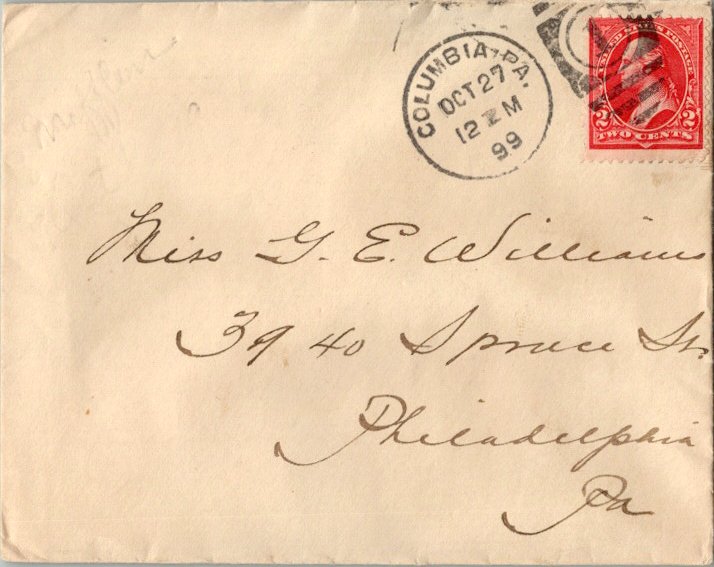 COLUMBIA, PA.
OCT 27
12 M
99
UNITED STATES POSTAGE
2 2
TWO CENTS
Miss G. E. Williams
3940 Spruce St.
Philadelphia
Pa